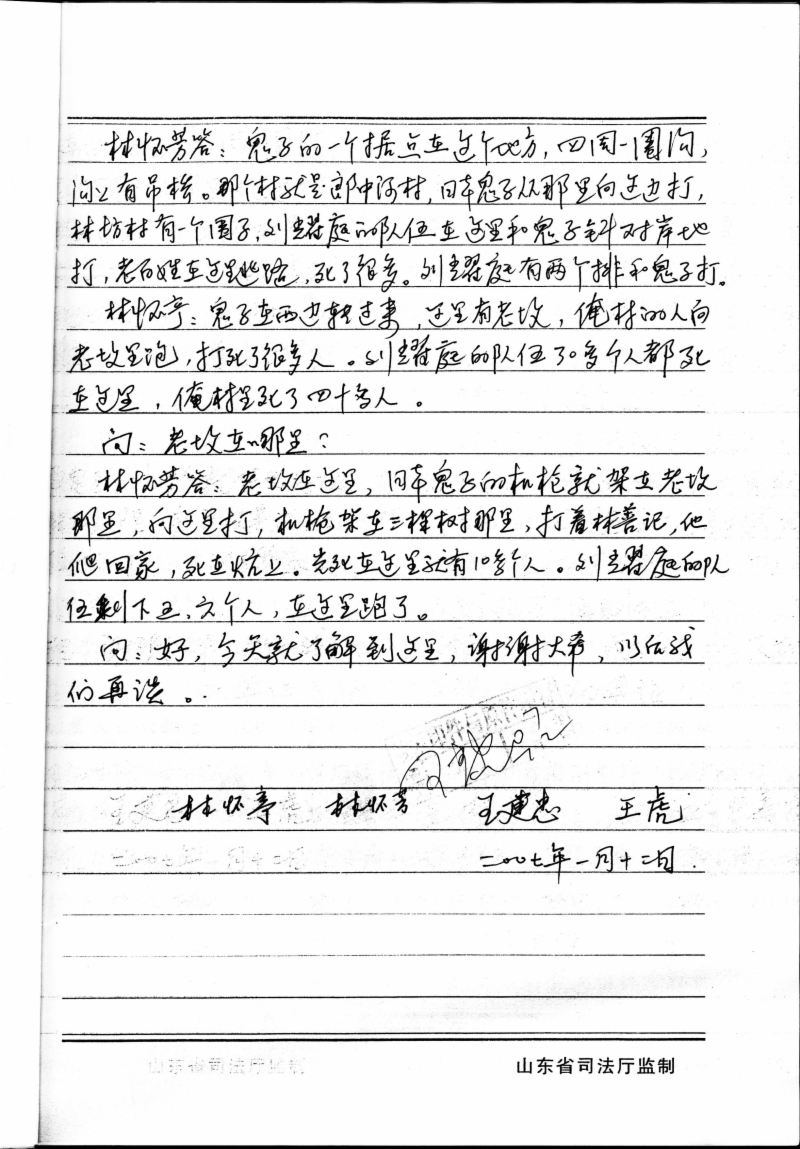 林怀芳答：鬼子的一个据点在这个地方，四周一圈沟，
沟上有吊桥。那个村就是郎中沟村，日本鬼子从那里向这边打，
林坊村有一个围子，刘耀庭的队伍在这里和鬼子针对岸地
打，老百姓在这里逃路，死了很多。刘耀庭有两个排和鬼子打。
林怀亭：鬼子在西边转过来，这里有老坟，俺村的人向
老坟里跑，打死了很多人。刘耀庭的队伍30多个人都死
在这里，俺村里死了四十多人。
问：老坟在哪里？
林怀芳答：老坟在这里，日本鬼子的机枪就架在老坟
那里，向这里打，机枪架在三棵树那里，打着林善记，他
爬回家，死在炕上。光死在这里就有10多个人。刘耀庭的队
伍剩下五、六个人，在这里跑了。
问：好，今天就了解到这里，谢谢大爷，以后我
们再谈。
林怀亭 林怀芳 王建忠 王虎
二00七年一月十二日.
山东省司法厅监制